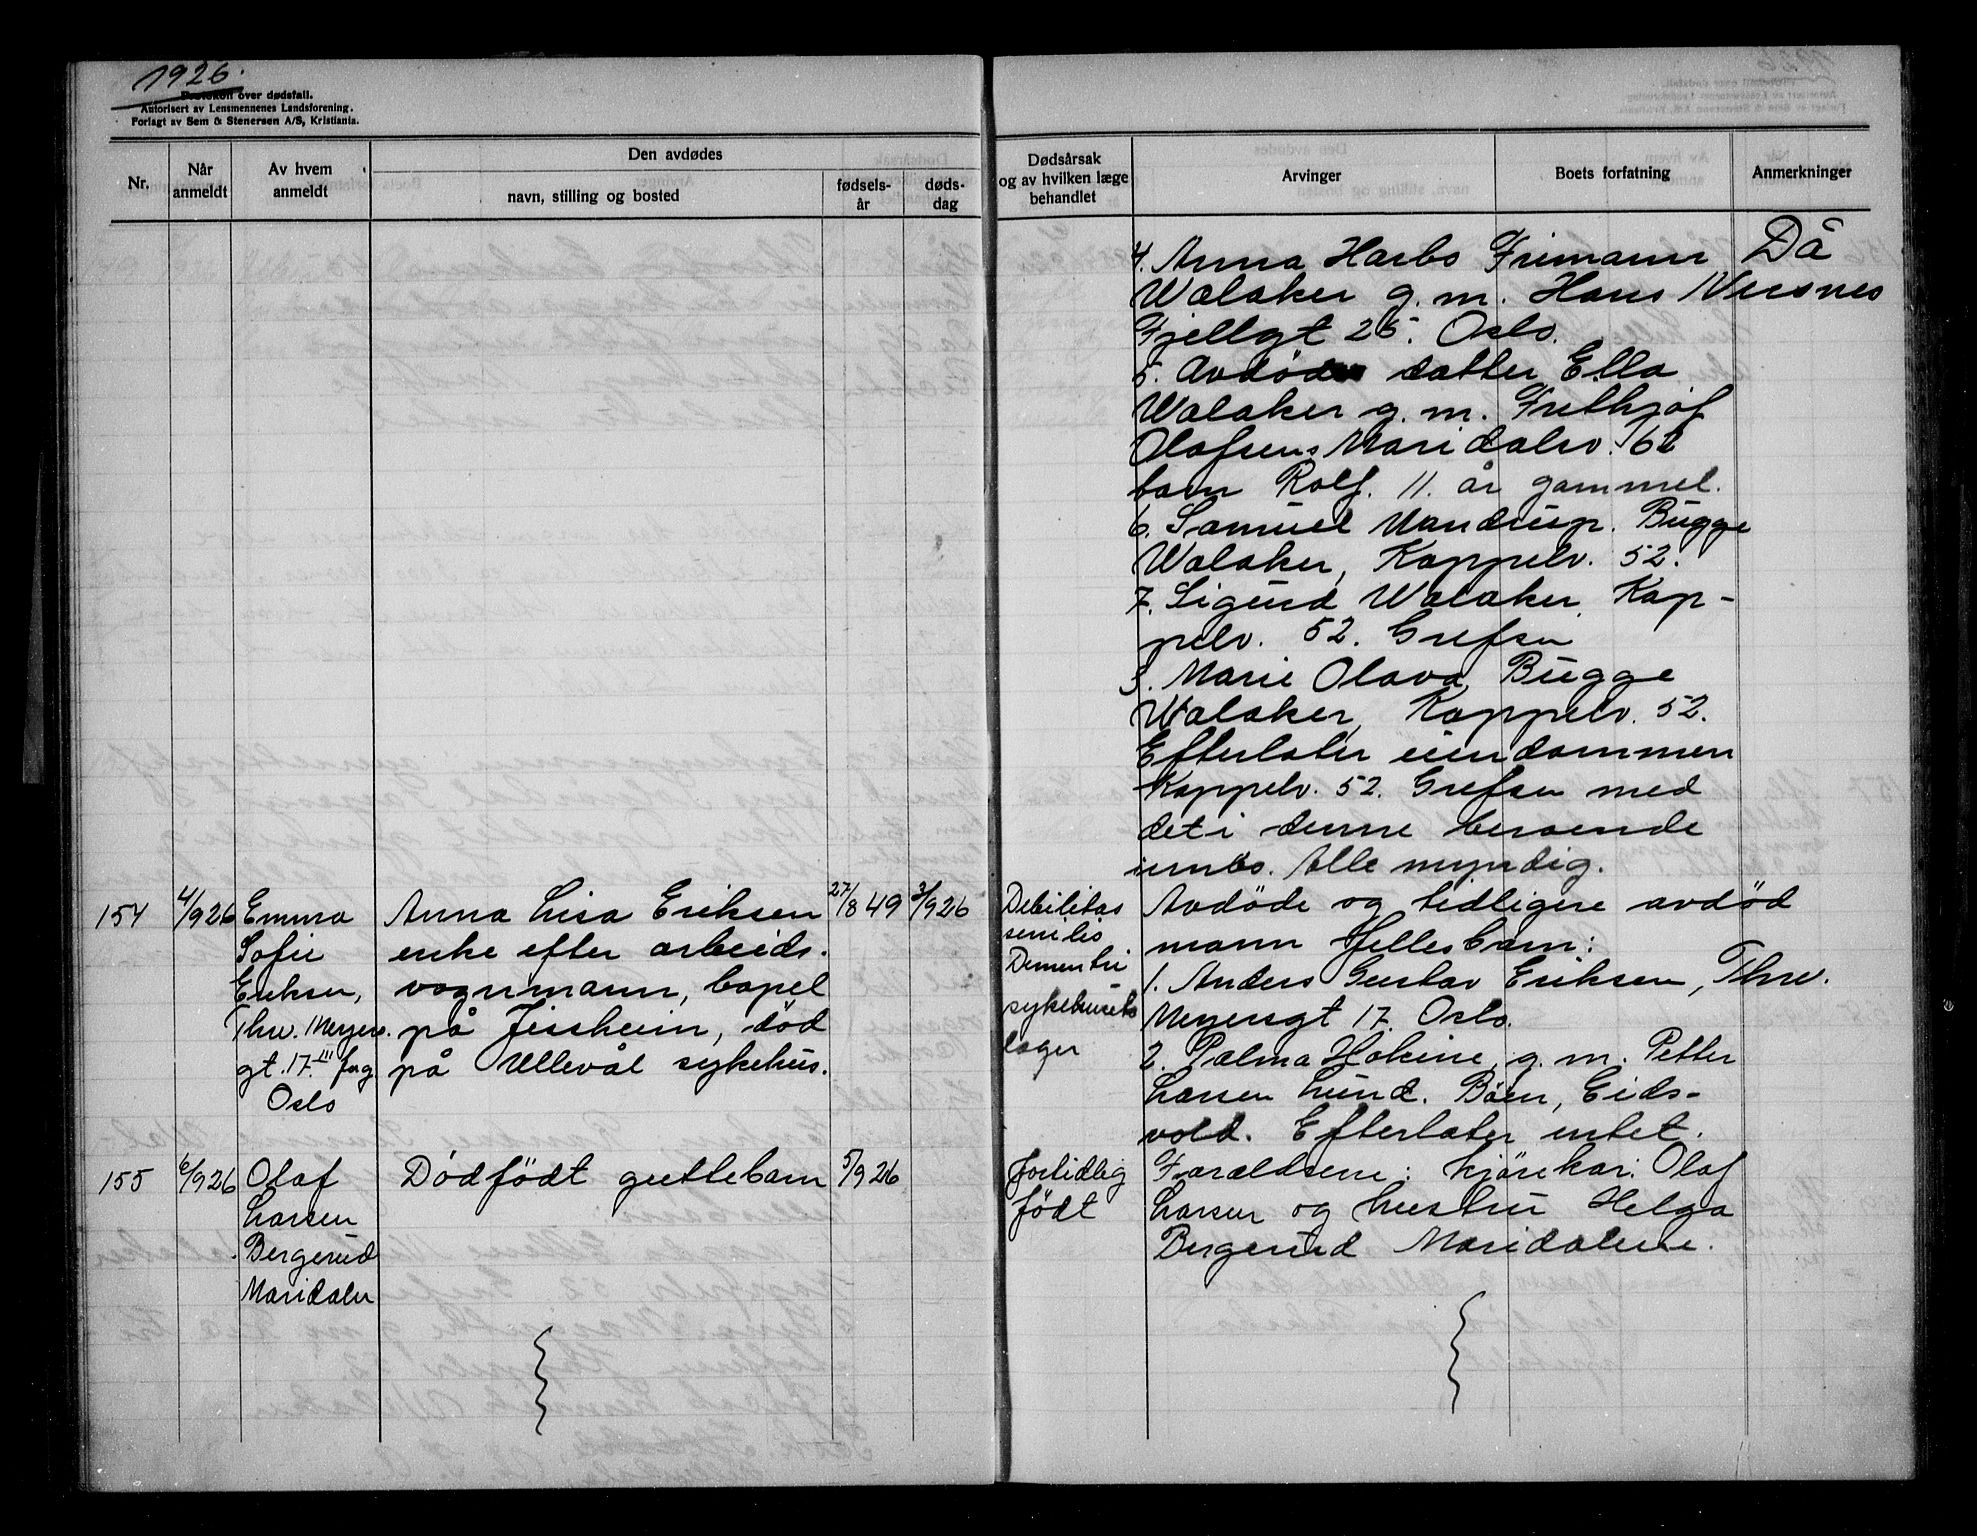 1926.
Protokoll over dødsfall.
Autorisert av Lensmennenes Landsforening.
Forlagt av Sem & Stenersen A/S, Kristiania.
Nr.
Når anmeldt
Av hvem anmeldt
Den avdødes
navn, stilling og bosted
fødselsår
dødsdag
Dødsårsak og av hvilken læge behandlet
Arvinger
Boets forfatning
Anmerkninger
4. Anna Harbo Frimann Då
Walaker g.m. Hans Nersnes
Fjellgt 25. Oslo.
5. Avdöde datter Ella
Walaker g.m. Frithjof
Olafsens Maridalsv. 162
barn Rolf. 11. år gammel.
6. Samuel Mandrup. Bugge
Walaker, Kappelv. 52.
7. Sigurd Walaker, Kap-
pelv. 52. Grefsen
8. Marie Olava Bugge
Walaker, Kappelv. 52.
Efterlater eiendommen
Kappelv. 52. Grefsen med
det i denne beroende
innbo. Alle myndig.
154
4/9 26
Emma
Sofie
Eriksen,
Thv. Meyers.
gt. 17. III opg
Oslo
Anna Lisa Eriksen
enke efter arbeids.
vognmann, bopel
på Jessheim, död
på Ullevål sykehus.
27/8 49
3/9 26
Debilitas
senilis
Dementi
sykehusets
læger
Avdöde og tidligere avdöd
mann fellesbarn:
1. Anders Gustav Eriksen, Thv.
Meyersgt 17. Oslo.
2. Palma Hokine, g.m. Petter
Larsen Lund. Böen, Eids-
vold. Efterlater intet.
155
6/9 26
Olaf
Larsen
Bergerud
Maridalen
Dödfödt guttebarn
5/9 26
fortidlig
födt
Foreldrene: kjörekar. Olaf
Larsen og hustru Helga
Bergerud Maridalene.